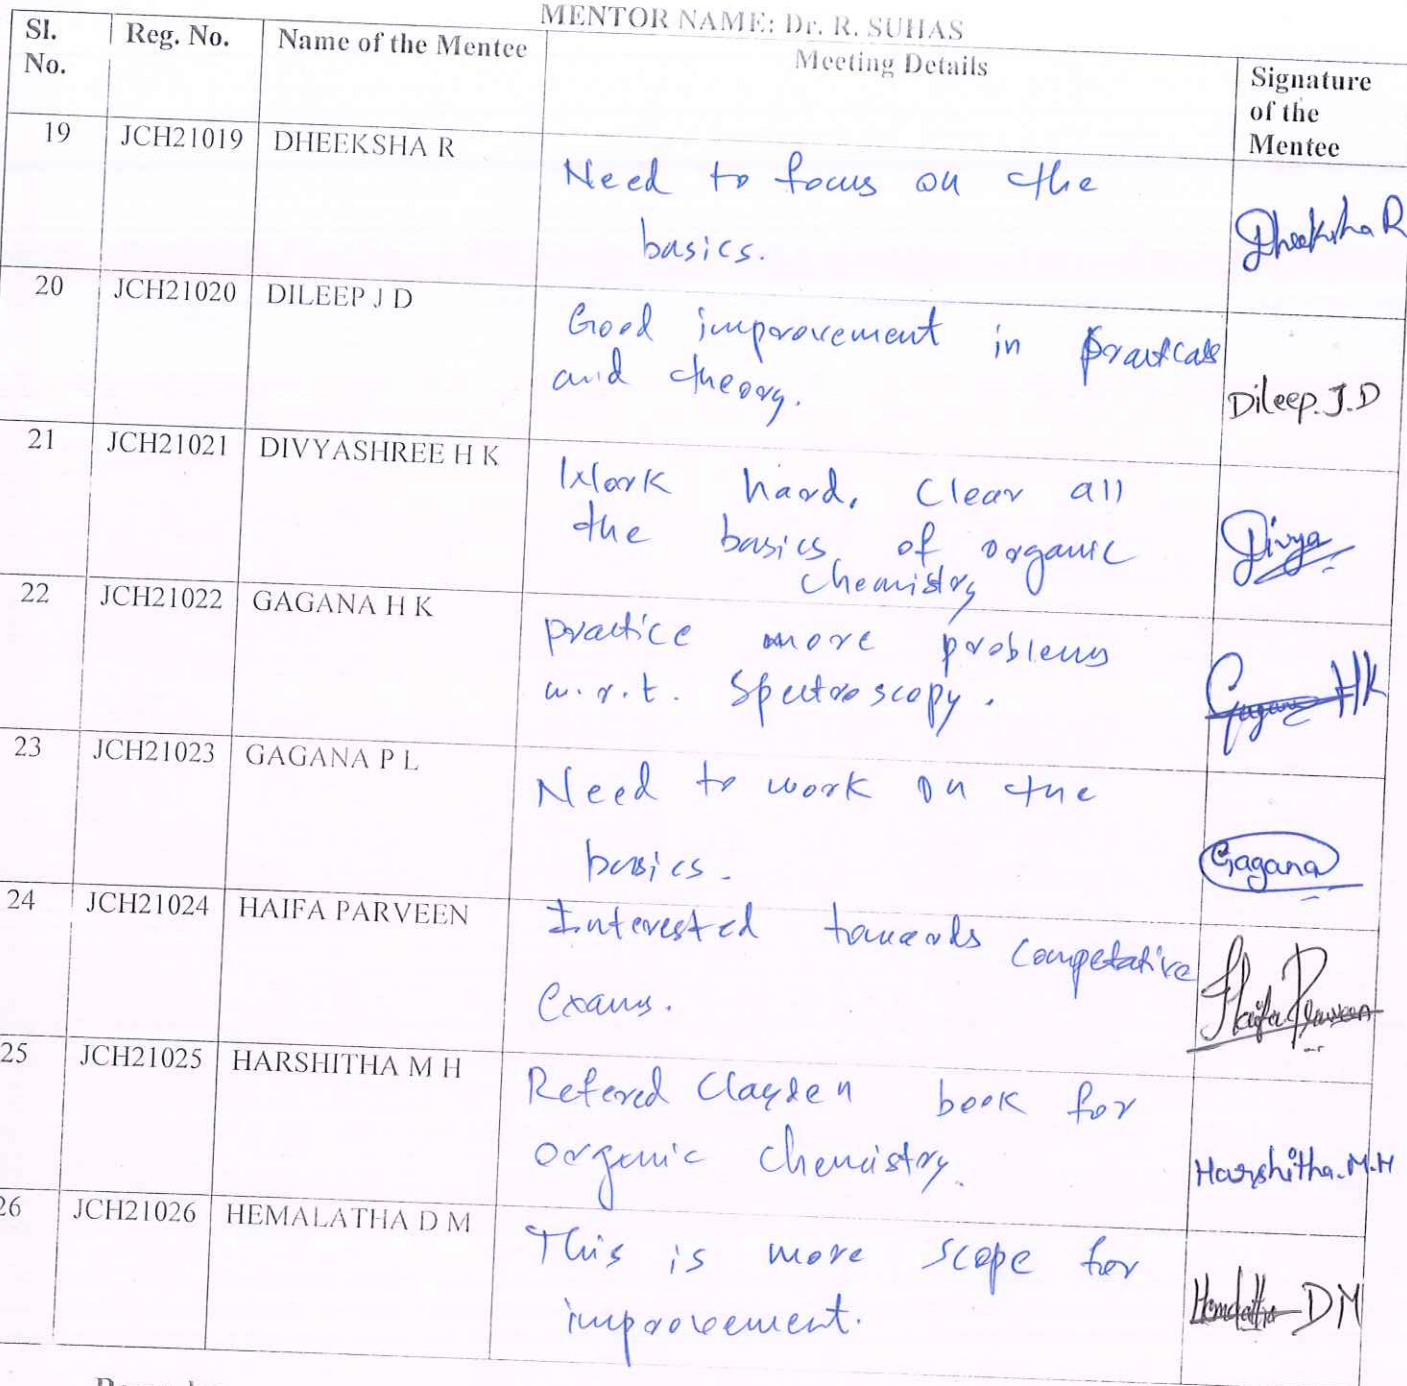 MENTOR NAME: Dr. R. SUHAS
Sl. No. | Reg. No. | Name of the Mentee | Meeting Details | Signature of the Mentee
19 JCH21019 DHEEKSHA R
Need to focus on the
basics.
Dheeksha R
20 JCH21020 DILEEP J D
Good improvement in practicals
and theory.
Dileep.J.D
21 JCH21021 DIVYASHREE H K
Work hard, Clear all
the basics of organic
chemistry
Divya
22 JCH21022 GAGANA H K
practice more problems
w.r.t. Spectroscopy.
Gagana HK
23 JCH21023 GAGANA P L
Need to work on the
basics.
Gagana
24 JCH21024 HAIFA PARVEEN
Interested towards Competative
Exams.
Haifa Parveen
25 JCH21025 HARSHITHA M H
Refered Clayden book for
organic chemistry.
Harshitha.M.H
26 JCH21026 HEMALATHA D M
This is more scope for
improvement.
Hemalatha DM